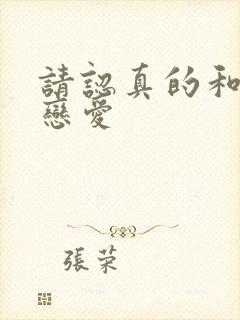 請認真的和
戀愛
張榮